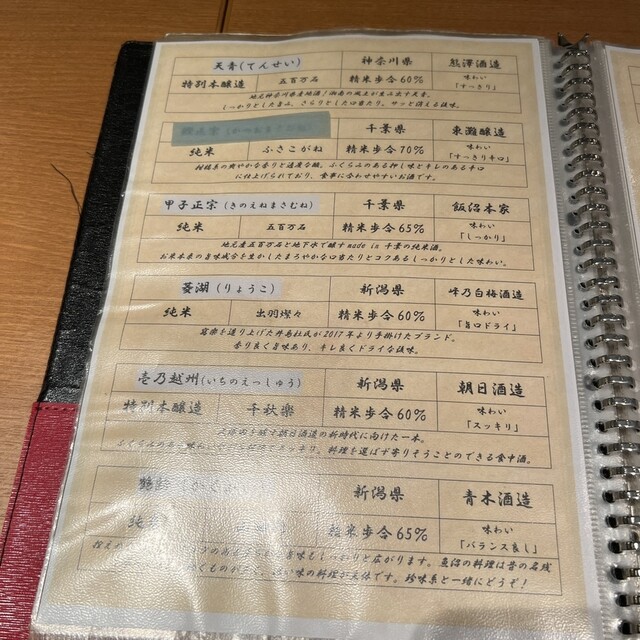 天青(てんせい) 神奈川県 熊澤酒造
特別本醸造 五百万石 精米歩合60% 味わい「すっきり」
地元神奈川県産地酒!湘南の風土が生み出す天青。
しっかりとした旨み、さらりとした口当たり。サッと消える後味。
千葉県 東灘醸造
純米 ふさこがね 精米歩合70% 味わい「すっきり辛口」
柑橘系の爽やかな香りと適度な酸。ふくらみのある押し味とキレのある辛口
に仕上げられており、食事に合わせやすいお酒です。
甲子正宗(きのえねまさむね) 千葉県 飯沼本家
純米 五百万石 精米歩合65% 味わい「しっかり」
地元産五百万石と地下水で醸すmade in 千葉の純米酒。
お米本来の旨味成分を生かしたまろやかな口当たりとコクあるしっかりとした味わい。
菱湖(りょうこ) 新潟県 峰乃白梅酒造
純米 出羽燦々 精米歩合60% 味わい「旨口ドライ」
送り上げた井島杜氏が2017年より手掛けたブランド。
香り良く旨味あり、キレ良くドライな後味。
壱乃越州(いちのえっしゅう) 新潟県 朝日酒造
特別本醸造 千秋楽 精米歩合60% 味わい「スッキリ」
醸す朝日酒造の新時代に向けた一本。
ふくらみのある味わい スッキリ。料理を選ばず寄りそうことのできる食中酒。
新潟県 青木酒造
純 精米歩合65% 味わい「バランス良し」
旨味もしっかりと広がります。魚沼の料理は昔の名残
味の料理が主体です。珍味系と一緒にどうぞ!